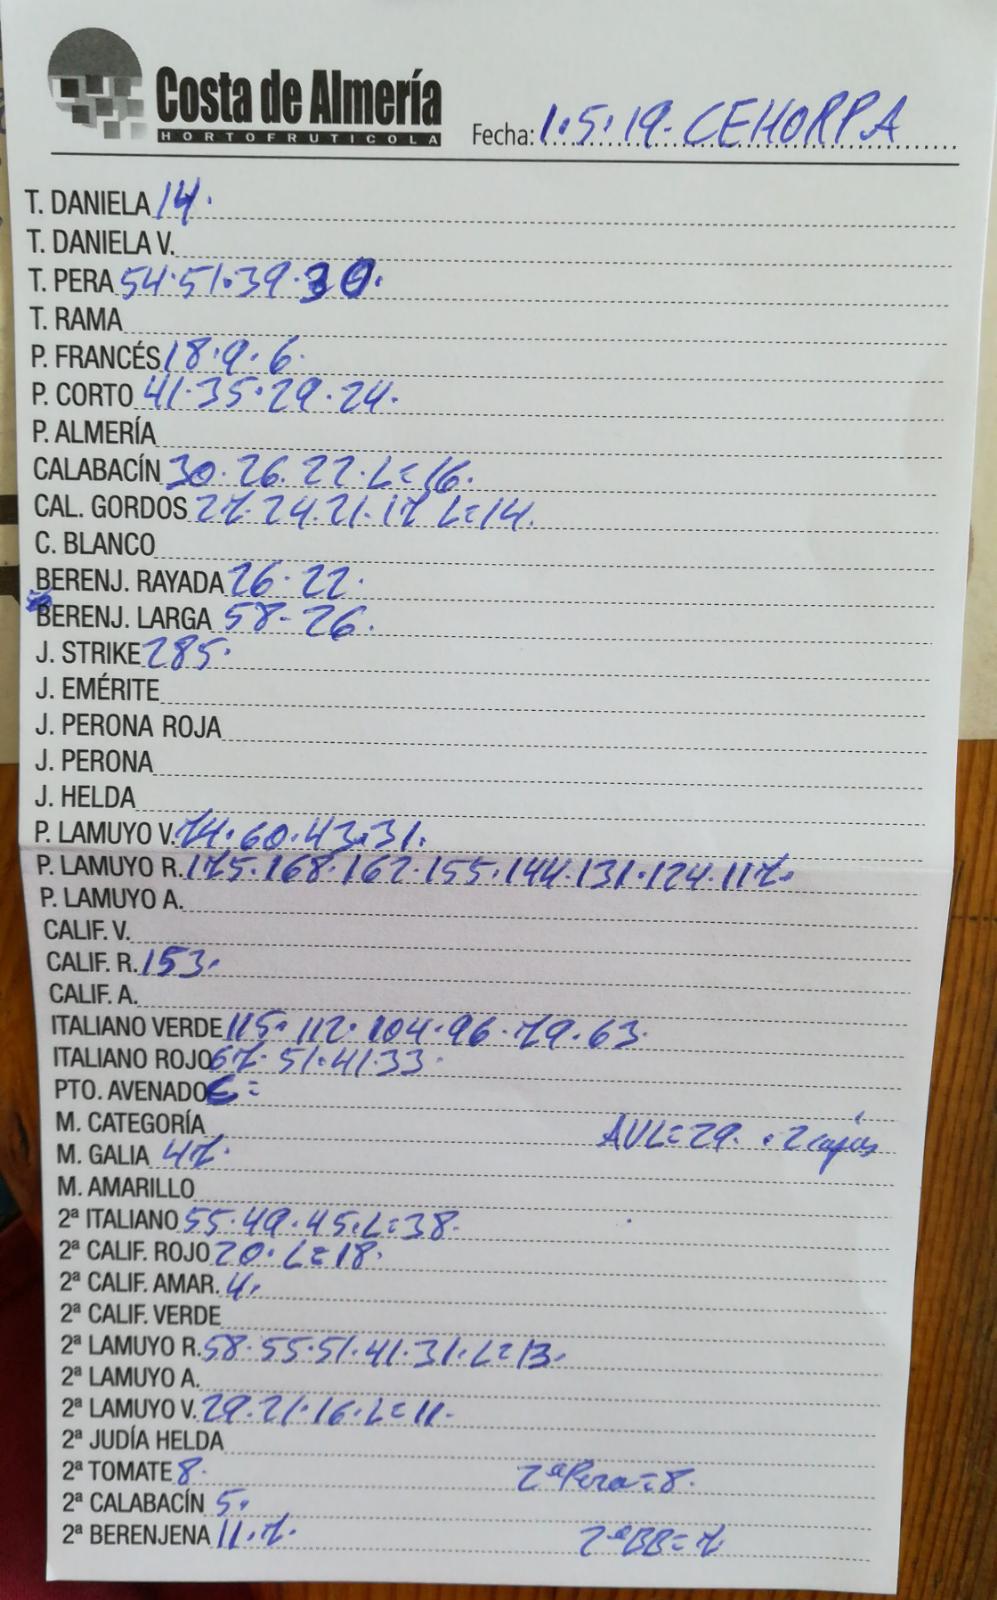 Costa de Almería
HORTOFRUTICOLA
Fecha: 1.5.19. CEHORPA
T. DANIELA 14.
T. DANIELA V.
T. PERA 54.51.39.30.
T. RAMA
P. FRANCÉS 18.9.6.
P. CORTO 41.35.29.24.
P. ALMERÍA
CALABACÍN 30.26.22.L=16.
CAL. GORDOS 27.24.21.17 L=14.
C. BLANCO
BERENJ. RAYADA 26.22.
BERENJ. LARGA 58-26.
J. STRIKE 285.
J. EMÉRITE
J. PERONA ROJA
J. PERONA
J. HELDA
P. LAMUYO V. 74.60.43.31.
P. LAMUYO R. 175.168.162.155.144.131.124.117.
P. LAMUYO A.
CALIF. V.
CALIF. R. 153.
CALIF. A.
ITALIANO VERDE 115.112.104.96.79.63.
ITALIANO ROJO 67.51.41.33.
PTO. AVENADO =
M. CATEGORÍA AVL=29. .2 cajas
M. GALIA 47.
M. AMARILLO
2ª ITALIANO 55.49.45.L=38.
2ª CALIF. ROJO 20. L=18.
2ª CALIF. AMAR. 4.
2ª CALIF. VERDE
2ª LAMUYO R. 58.55.51.41.31.L=13.
2ª LAMUYO A.
2ª LAMUYO V. 29.21.16.L=11.
2ª JUDÍA HELDA
2ª TOMATE 8. 2ª Pera=8.
2ª CALABACÍN 5.
2ª BERENJENA 11.7. 2ªBB=7